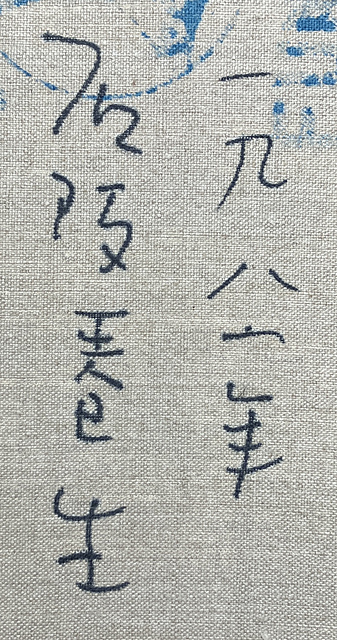 一九八一年
石阪春生